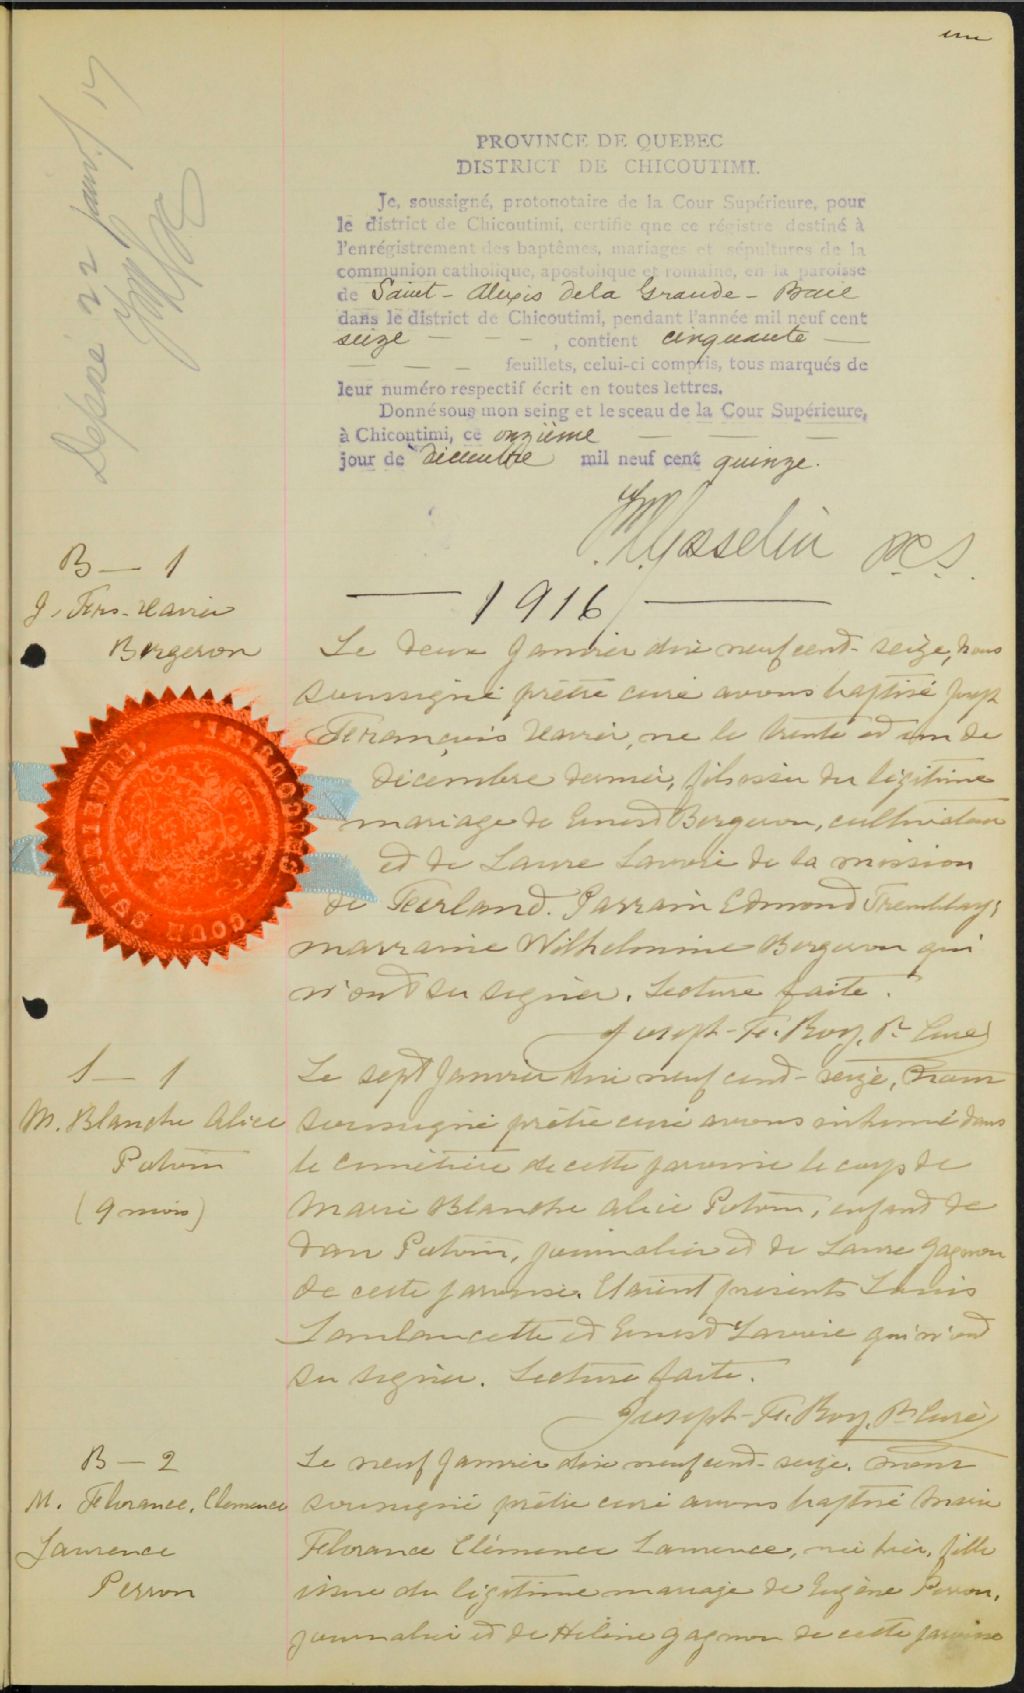 une
Déposé 22 janv. / 17
PROVINCE DE QUEBEC
DISTRICT DE CHICOUTIMI.
Je, soussigné, protonotaire de la Cour Supérieure, pour
le district de Chicoutimi, certifie que ce régistre destiné à
l'enrégistrement des baptêmes, mariages et sépultures de la
communion catholique, apostolique et romaine, en la paroisse
de Saint-Alexis de la Grande-Baie
dans le district de Chicoutimi, pendant l'année mil neuf cent
seize — — — , contient cinquante —
— — — feuillets, celui-ci compris, tous marqués de
leur numéro respectif écrit en toutes lettres.
Donné sous mon seing et le sceau de la Cour Supérieure,
à Chicoutimi, ce onzième — — —
jour de décembre mil neuf cent quinze.
Gosselin P.C.S.
— 1916 —
B — 1
J. Frs-Xavier
Bergeron
COUR SUPERIEURE, CHICOUTIMI
Le deux Janvier dix neuf cent-seize, Nous
soussigné prêtre curé avons baptisé Joseph
François Xavier, né le trente et un de
décembre dernier, fils issu du légitime
mariage de Ernest Bergeron, cultivateur
et de Laure Lavoie de la mission
de Ferland. Parrain Edmond Tremblay;
marraine Wilhelmine Bergeron qui
n'ont su signer. Lecture faite.
Joseph-Fs. Roy, Ptr Curé
S — 1
M. Blanche Alice
Potvin
(9 mois)
Le sept Janvier dix neuf cent-seize, Nous
soussigné prêtre curé avons inhumé dans
le cimetière de cette paroisse le corps de
Marie Blanche Alice Potvin, enfant de
Dan Potvin, journalier et de Laure Gagnon
de cette paroisse. Etaient présents Louis
Jomlancette et Ernest Lavoie qui n'ont
su signer. Lecture faite.
Joseph-Fs. Roy, Ptr Curé
B — 2
M. Florance, Clemence
Laurence
Perron
Le neuf Janvier dix neuf cent-seize. nous
soussigné prêtre curé avons baptisé Marie
Florance Clémence Laurence, née hier, fille
issue du légitime mariage de Eugène Perron,
journalier et de Hélène Gagnon de cette paroisse